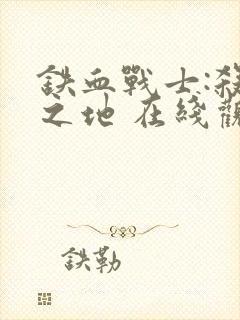 鉄血戰士:殺
之地 在綫觀
鉄勒